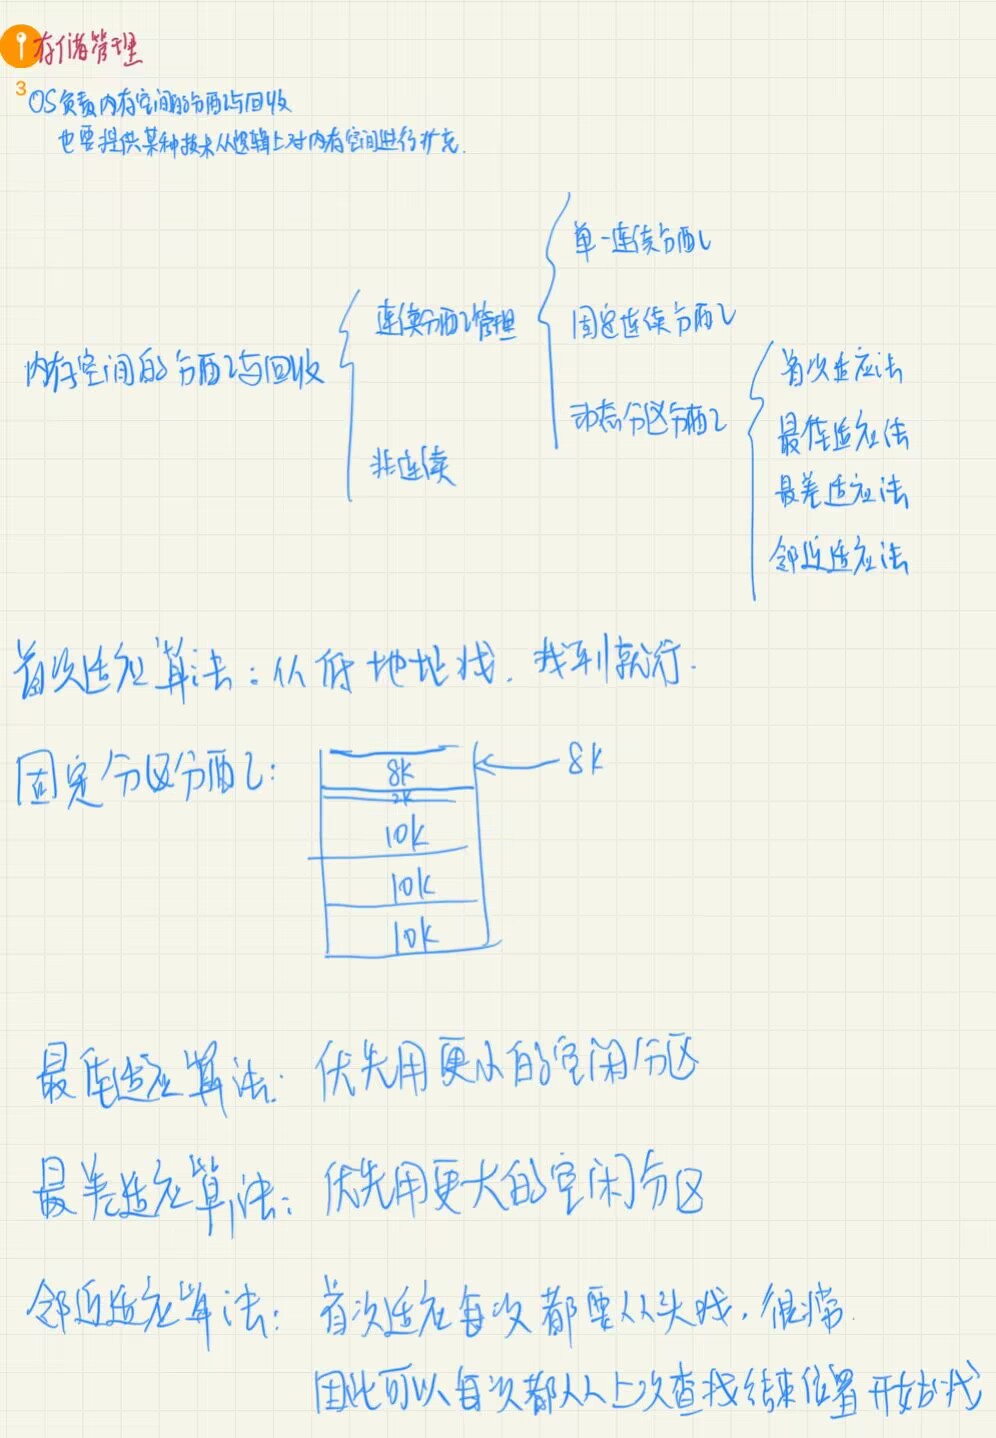 存储管理
3
OS负责内存空间的分配与回收
也要提供某种技术从逻辑上对内存空间进行扩充.
内存空间的分配与回收
连续分配管理
非连续
单一连续分配
固定连续分配
动态分区分配
首次适应法
最佳适应法
最差适应法
邻近适应法
首次适应算法:从低地址找.找到就行.
固定分区分配:
8K
2K
10K
10K
10K
8K
最佳适应算法:优先用更小的空闲分区
最差适应算法:优先用更大的空闲分区
邻近适应算法:首次适应每次都要从头找,很
因此可以每次都从上次查找结束位置开始找